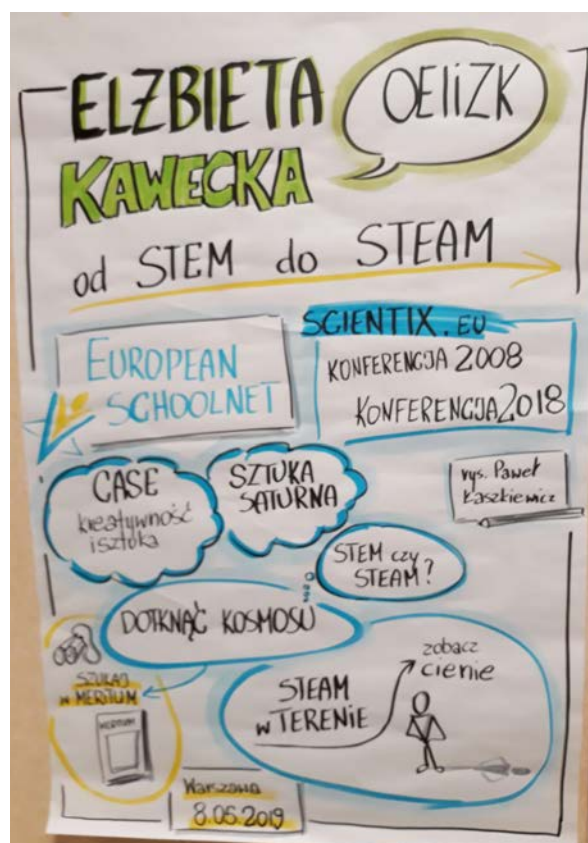 ELŻBIETA
KAWECKA
OEIiZK
od STEM do STEAM
EUROPEAN
SCHOOLNET
SCIENTIX.EU
KONFERENCJA 2008
KONFERENCJA 2018
CASE
kreatywność
i sztuka
SZTUKA
SATURNA
rys. Paweł
Łaszkiewicz
STEM czy
STEAM?
DOTKNĄĆ KOSMOSU
SZUKAJ
w MERITUM
MERITUM
STEAM
w TERENIE
zobacz
cienie
Warszawa
8.06.2019